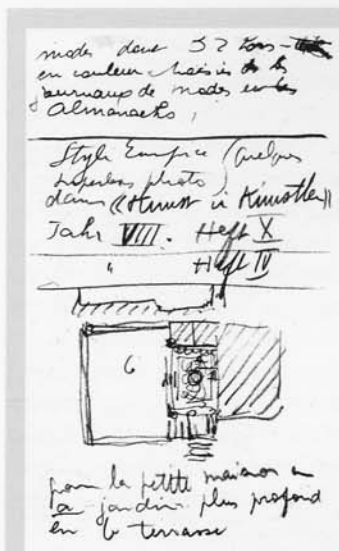 modes dans 52 
en couleur choisies ds les
journaux de modes et les
Almanachs,
Style Empire (quelques
superbes photo)
dans «Kunst u Künstler»
Jahr VIII. Heft X
" Heft IV
6
pour la petite maison en
a jardin plus profond
en b terrasse